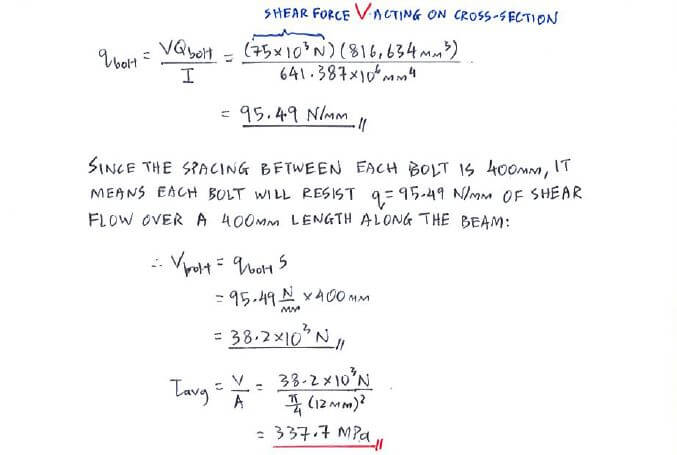 SHEAR FORCE V ACTING ON CROSS-SECTION
q_bolt = VQ_bolt / I = (75×10³N)(816,634mm³) / 641.387×10⁶mm⁴
= 95.49 N/mm
SINCE THE SPACING BETWEEN EACH BOLT IS 400mm, IT
MEANS EACH BOLT WILL RESIST q=95.49 N/mm OF SHEAR
FLOW OVER A 400mm LENGTH ALONG THE BEAM:
∴ V_bolt = q_bolt S
= 95.49 N/mm × 400 mm
= 38.2×10³ N
τavg = V/A = 38.2×10³N / π/4 (12mm)²
= 337.7 MPa